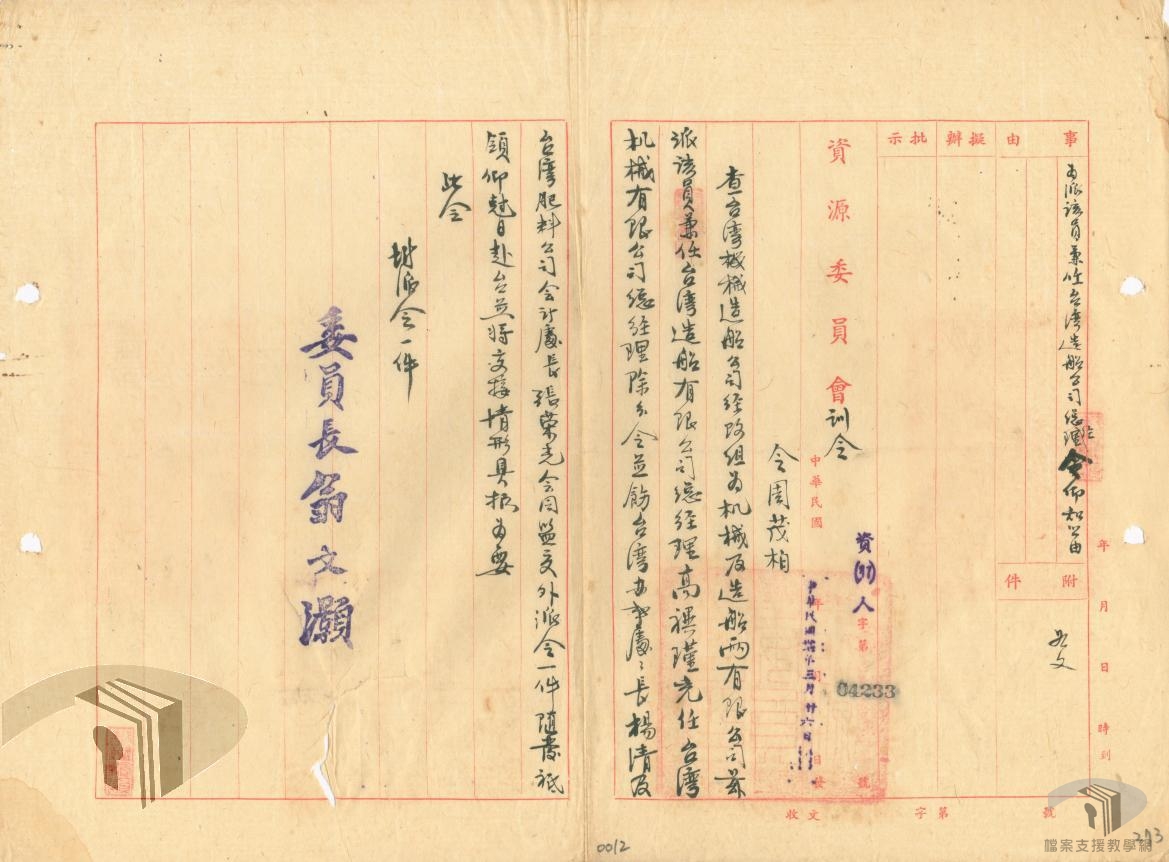 事由
為派該員兼任台灣造船公司總經理令仰知照由
擬辦
批示
附件
如文
年 月 日 時到
收文 字第 號
資源委員會訓令
資(37)人字第04233號
中華民國 年 月 日發
中華民國卅七年三月廿六日
令周茂柏
查台灣機械造船公司經改組為机械及造船兩有限公司茲
派該員兼任台灣造船有限公司總經理高禩瑾充任台灣
机械有限公司總經理除分令並飭台灣办事處々長楊清及
台灣肥料公司会計處長張荣光会同监交外派令一件随發祗
領仰尅日赴台并將交接情形具报為要
此令
坿派令一件
委員長翁文灝
0012
273
檔案支援教學網